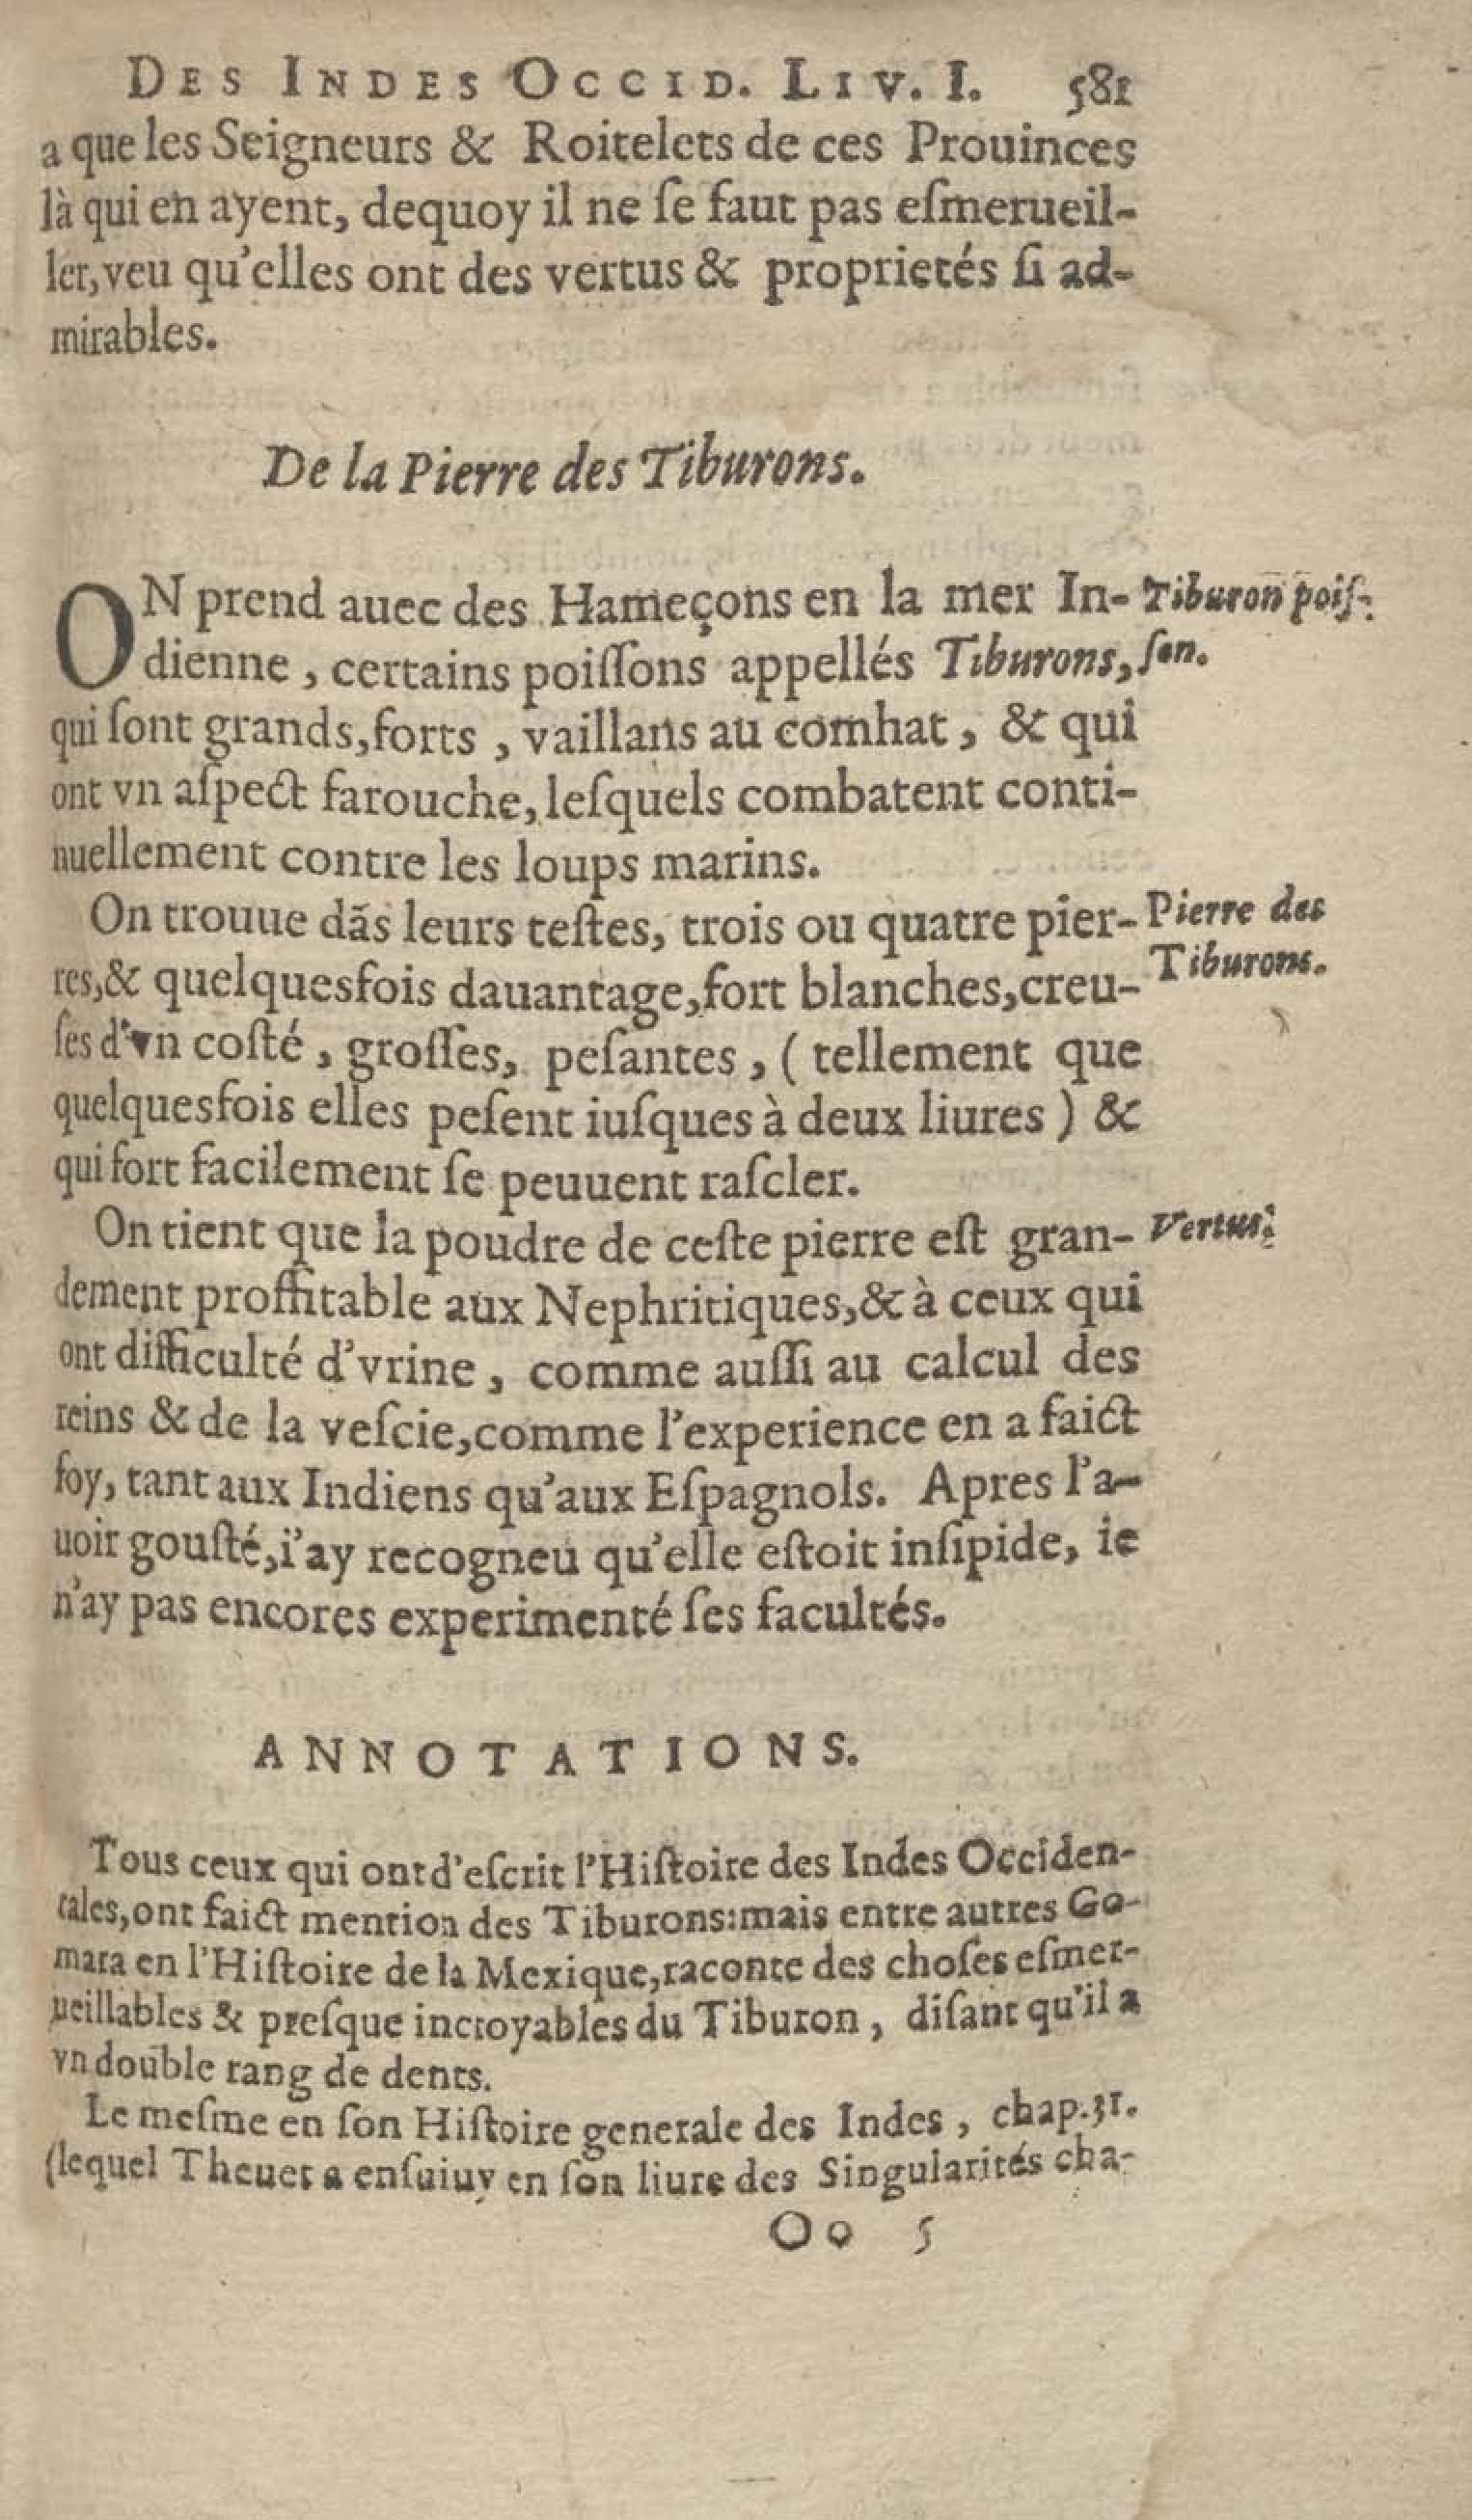 DES INDES OCCID. LIV. I. 581
a que les Seigneurs & Roitelets de ces Prouinces
là qui en ayent, dequoy il ne ſe faut pas eſmerueil-
ler, veu qu'elles ont des vertus & proprietés ſi ad-
mirables.
De la Pierre des Tiburons.
ON prend auec des Hameçons en la mer In-
dienne, certains poiſſons appellés Tiburons,
Tiburon poiſ-
ſon.
qui ſont grands, forts, vaillans au comhat, & qui
ont vn aſpect farouche, leſquels combatent conti-
nuellement contre les loups marins.
On trouue dãs leurs teſtes, trois ou quatre pier-
res, & quelquesfois dauantage, fort blanches, creu-
Pierre des
Tiburons.
ſes d'vn coſté, groſſes, peſantes, (tellement que
quelquesfois elles peſent iuſques à deux liures) &
qui fort facilement ſe peuuent raſcler.
On tient que la poudre de ceſte pierre eſt gran-
Vertus:
dement proffitable aux Nephritiques, & à ceux qui
ont difficulté d'vrine, comme auſſi au calcul des
reins & de la veſcie, comme l'experience en a faict
foy, tant aux Indiens qu'aux Eſpagnols. Apres l'a-
uoir gouſté, i'ay recogneu qu'elle eſtoit inſipide, ie
n'ay pas encores experimenté ſes facultés.
ANNOTATIONS.
Tous ceux qui ont d'eſcrit l'Hiſtoire des Indes Occiden-
tales, ont faict mention des Tiburons: mais entre autres Go-
mara en l'Hiſtoire de la Mexique, raconte des choſes eſmer-
ueillables & preſque incroyables du Tiburon, diſant qu'il a
vn double rang de dents.
Le meſme en ſon Hiſtoire generale des Indes, chap. 31.
(lequel Theuet a enſuiuy en ſon liure des Singularités cha-
Oo 5